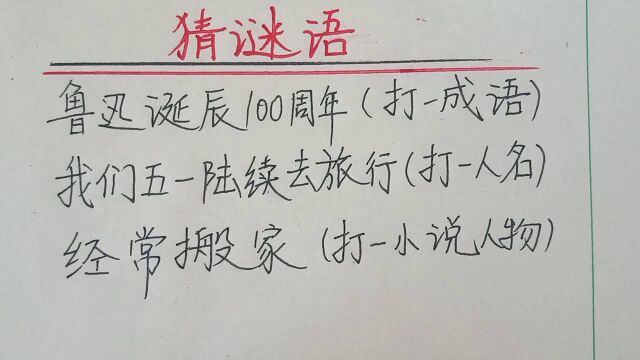 猜谜语
鲁迅诞辰100周年(打一成语)
我们五一陆续去旅行(打一人名)
经常搬家(打一小说人物)